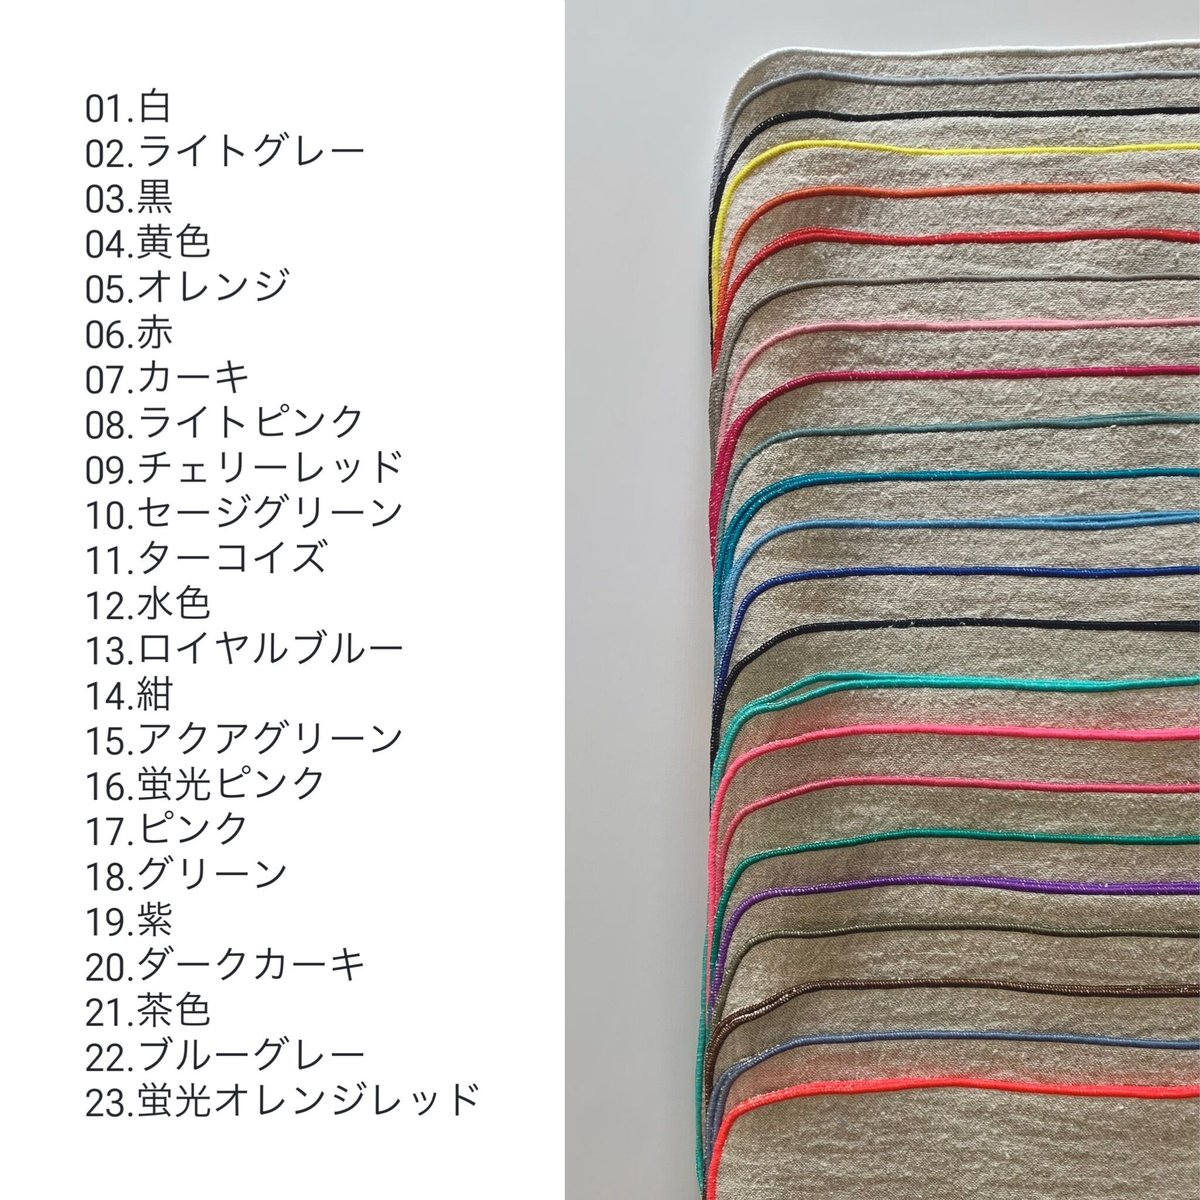 01.白
02.ライトグレー
03.黒
04.黄色
05.オレンジ
06.赤
07.カーキ
08.ライトピンク
09.チェリーレッド
10.セージグリーン
11.ターコイズ
12.水色
13.ロイヤルブルー
14.紺
15.アクアグリーン
16.蛍光ピンク
17.ピンク
18.グリーン
19.紫
20.ダークカーキ
21.茶色
22.ブルーグレー
23.蛍光オレンジレッド